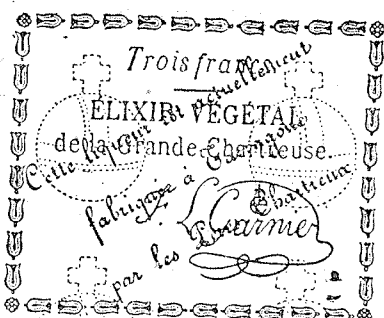 Trois francs
ÉLIXIR VÉGÉTAL
de la Grande-Chartreuse.
Cette liqueur est actuellement
fabriquée à Tarragone
par les Pères Chartreux
L. Garnier